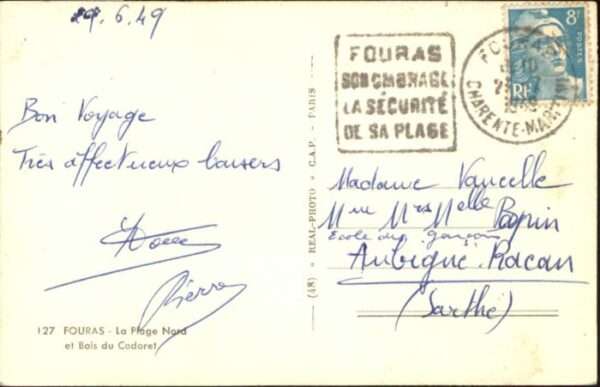 29.6.49
Bon Voyage
Très affectueux baisers
Pierre
127 FOURAS - La Plage Nord
et Bois du Cadoret
(48) REAL-PHOTO C.A.P. PARIS
FOURAS
SON OMBRAGE
LA SÉCURITÉ
DE SA PLAGE
FOURAS
CHARENTE-MARITIME
8F
POSTES
RF
Madame Vancelle
Mme Mrs Melle Papin
Ecole des garçons
Aubigné-Racan
(Sarthe)